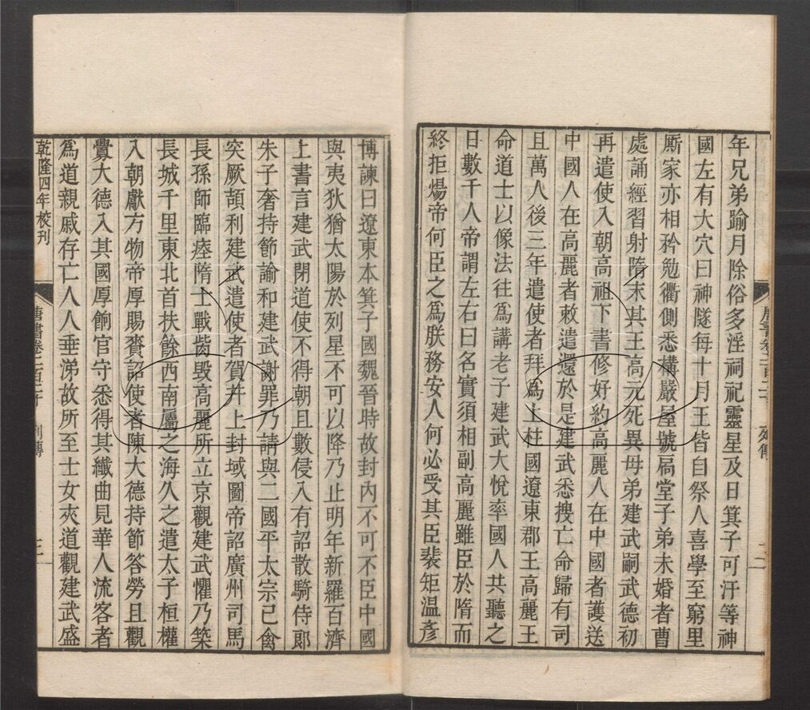 年兄弟踰月除俗多淫祠祀靈星及日箕子可汗等神
國左有大穴曰神隧每十月王皆自祭人喜學至窮里
厮家亦相矜勉衢側悉構嚴屋號扄堂子弟未婚者曹
處誦經習射隋末其王高元死異母弟建武嗣武德初
再遣使入朝高祖下書修好約高麗人在中國者護送
中國人在高麗者敕遣還於是建武悉搜亡命歸有司
且萬人後三年遣使者拜爲上柱國遼東郡王高麗王
命道士以像法往爲講老子建武大悅率國人共聽之
日數千人帝謂左右曰名實須相副高麗雖臣於隋而
終拒煬帝何臣之爲朕務安人何必受其臣裴矩温彥
博諫曰遼東本箕子國魏晉時故封內不可不臣中國
與夷狄猶太陽於列星不可以降乃止明年新羅百濟
上書言建武閉道使不得朝且數侵入有詔散騎侍郎
朱子奢持節諭和建武謝罪乃請與二國平太宗已禽
突厥頡利建武遣使者賀并上封域圖帝詔廣州司馬
長孫師臨瘞隋士戰胔毀高麗所立京觀建武懼乃築
長城千里東北首扶餘西南屬之海久之遣太子桓權
入朝獻方物帝厚賜賚詔使者陳大德持節答勞且觀
釁大德入其國厚餉官守悉得其纖曲見華人流客者
爲道親戚存亡人人垂涕故所至士女夾道觀建武盛
乾隆四年校刊
唐書卷二百二十 列傳
三